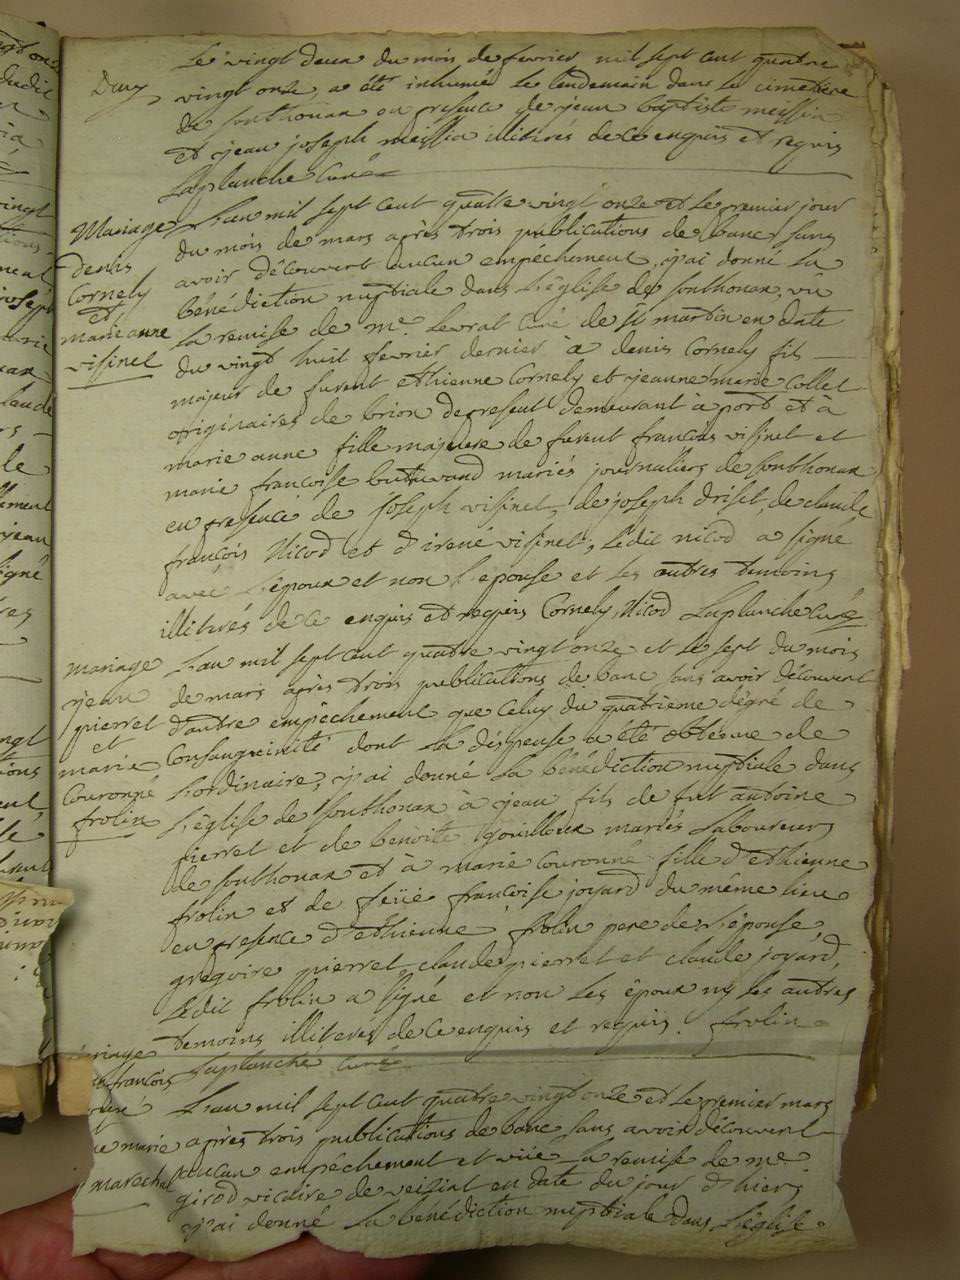 Le vingt deux du mois de fevrier mil sept cent quatre
vingt onze a été inhumé le lendemain dans le cimetière
de Sonthonax en presence de jean baptiste meissia
et jean joseph meissia illitirés de ce enquis et requis
Laplanche Curé
Mariage
denis
Cornely
et
marie anne
visinet
L'an mil sept cent quatre vingt onze et le premier jour
du mois de mars après trois publications de banc sans
avoir découvert aucun empéchement, j'ai donné la
bénédiction nuptiale dans L'église de Sonthonax, vu
La remise de mr. Levrat Curé de St martin en date
du vingt huit fevrier dernier à denis Cornely fils
majeur de furent ethienne Cornely et jeanne marie Collet
originaires de brion de present demeurant à port et à
marie anne fille majeure de furent françois visinet et
marie françoise mariés journaliers de Sonthonax
en presence de joseph visinet, de joseph drisit, de claude
françois Nicod et d'irené visinet, Ledit nicod a signé
avec L'époux et non L'épouse et les autres temoins
illitirés de ce enquis et requis Cornely Nicod Laplanche Curé
mariage
jean
pierret
et
marie
Couronné
frolin
L'an mil sept cent quatre vingt onze et le sept du mois
de mars après trois publications de banc sans avoir découvert
d'autre empéchement que Celuy du quatrieme dégré de
Consanguinité dont la dispense a été obtenue de
L'ordinaire, j'ai donné La bénédiction nuptiale dans
L'église de Sonthonax à jean fils de fut antoine
pierret et de benoite gouilloux mariés Laboureurs
de Sonthonax et à marie Couronné fille d'ethienne
frolin et de feüe françoise joyard du même lieu
en presence d'ethienne frolin pere de L'épouse,
gregoire pierret, claude pierret et claude joyard,
Ledit frolin a signé et non Les époux ny les autres
temoins illiteres de ce enquis et requis. frolin
Laplanche Curé
françois
marie
marechal
L'an mil sept cent quatre vingt onze et le premier mars
après trois publications de banc sans avoir découvert
aucun empéchement et vüe la remise de mr.
girod vicaire de veiziat en date du jour d'hiers
j'ai donné La bénédiction nuptiale dans L'église